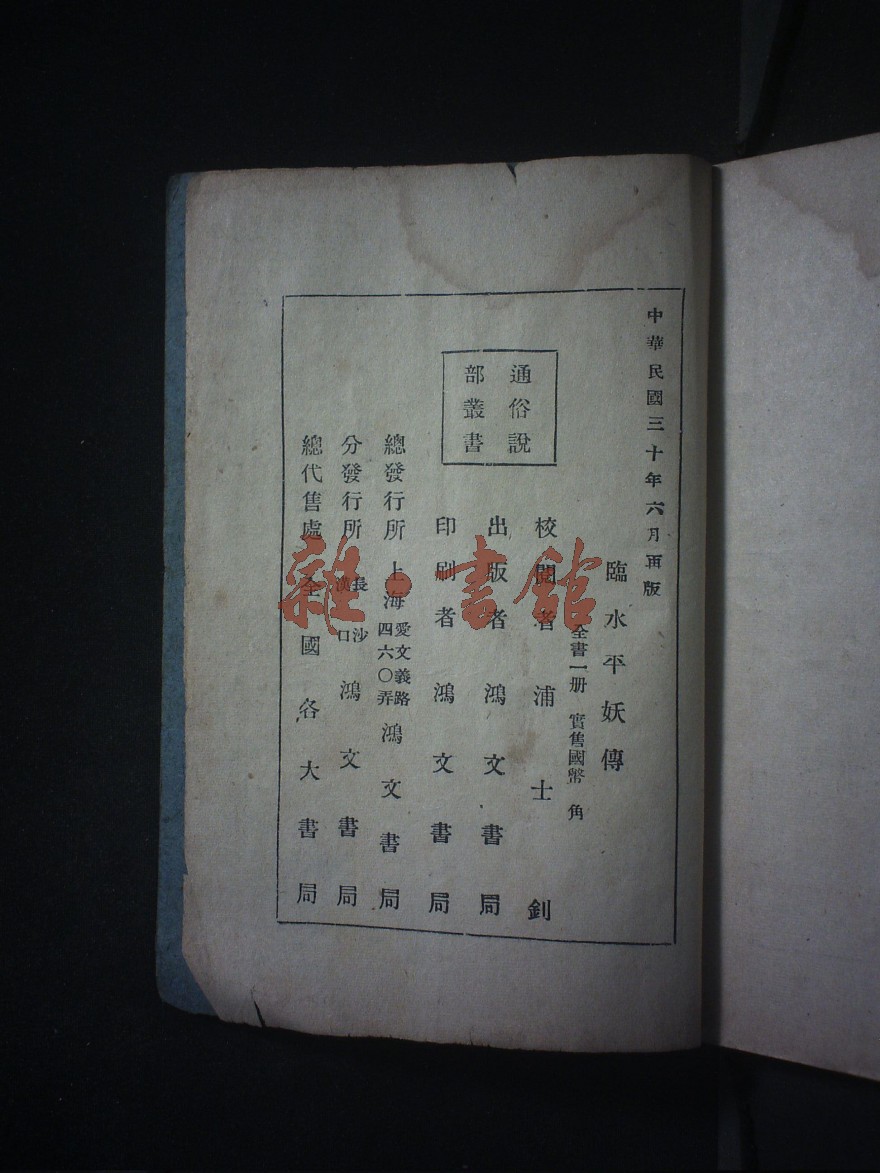 中華民國三十年六月再版
臨水平妖傳
全書一册 實售國幣 角
通俗說
部叢書
校閱者 浦士釗
出版者 鴻文書局
印刷者 鴻文書局
總發行所 上海 愛文義路四六〇弄 鴻文書局
分發行所 長沙 漢口 鴻文書局
總代售處 全國各大書局
雜·書館